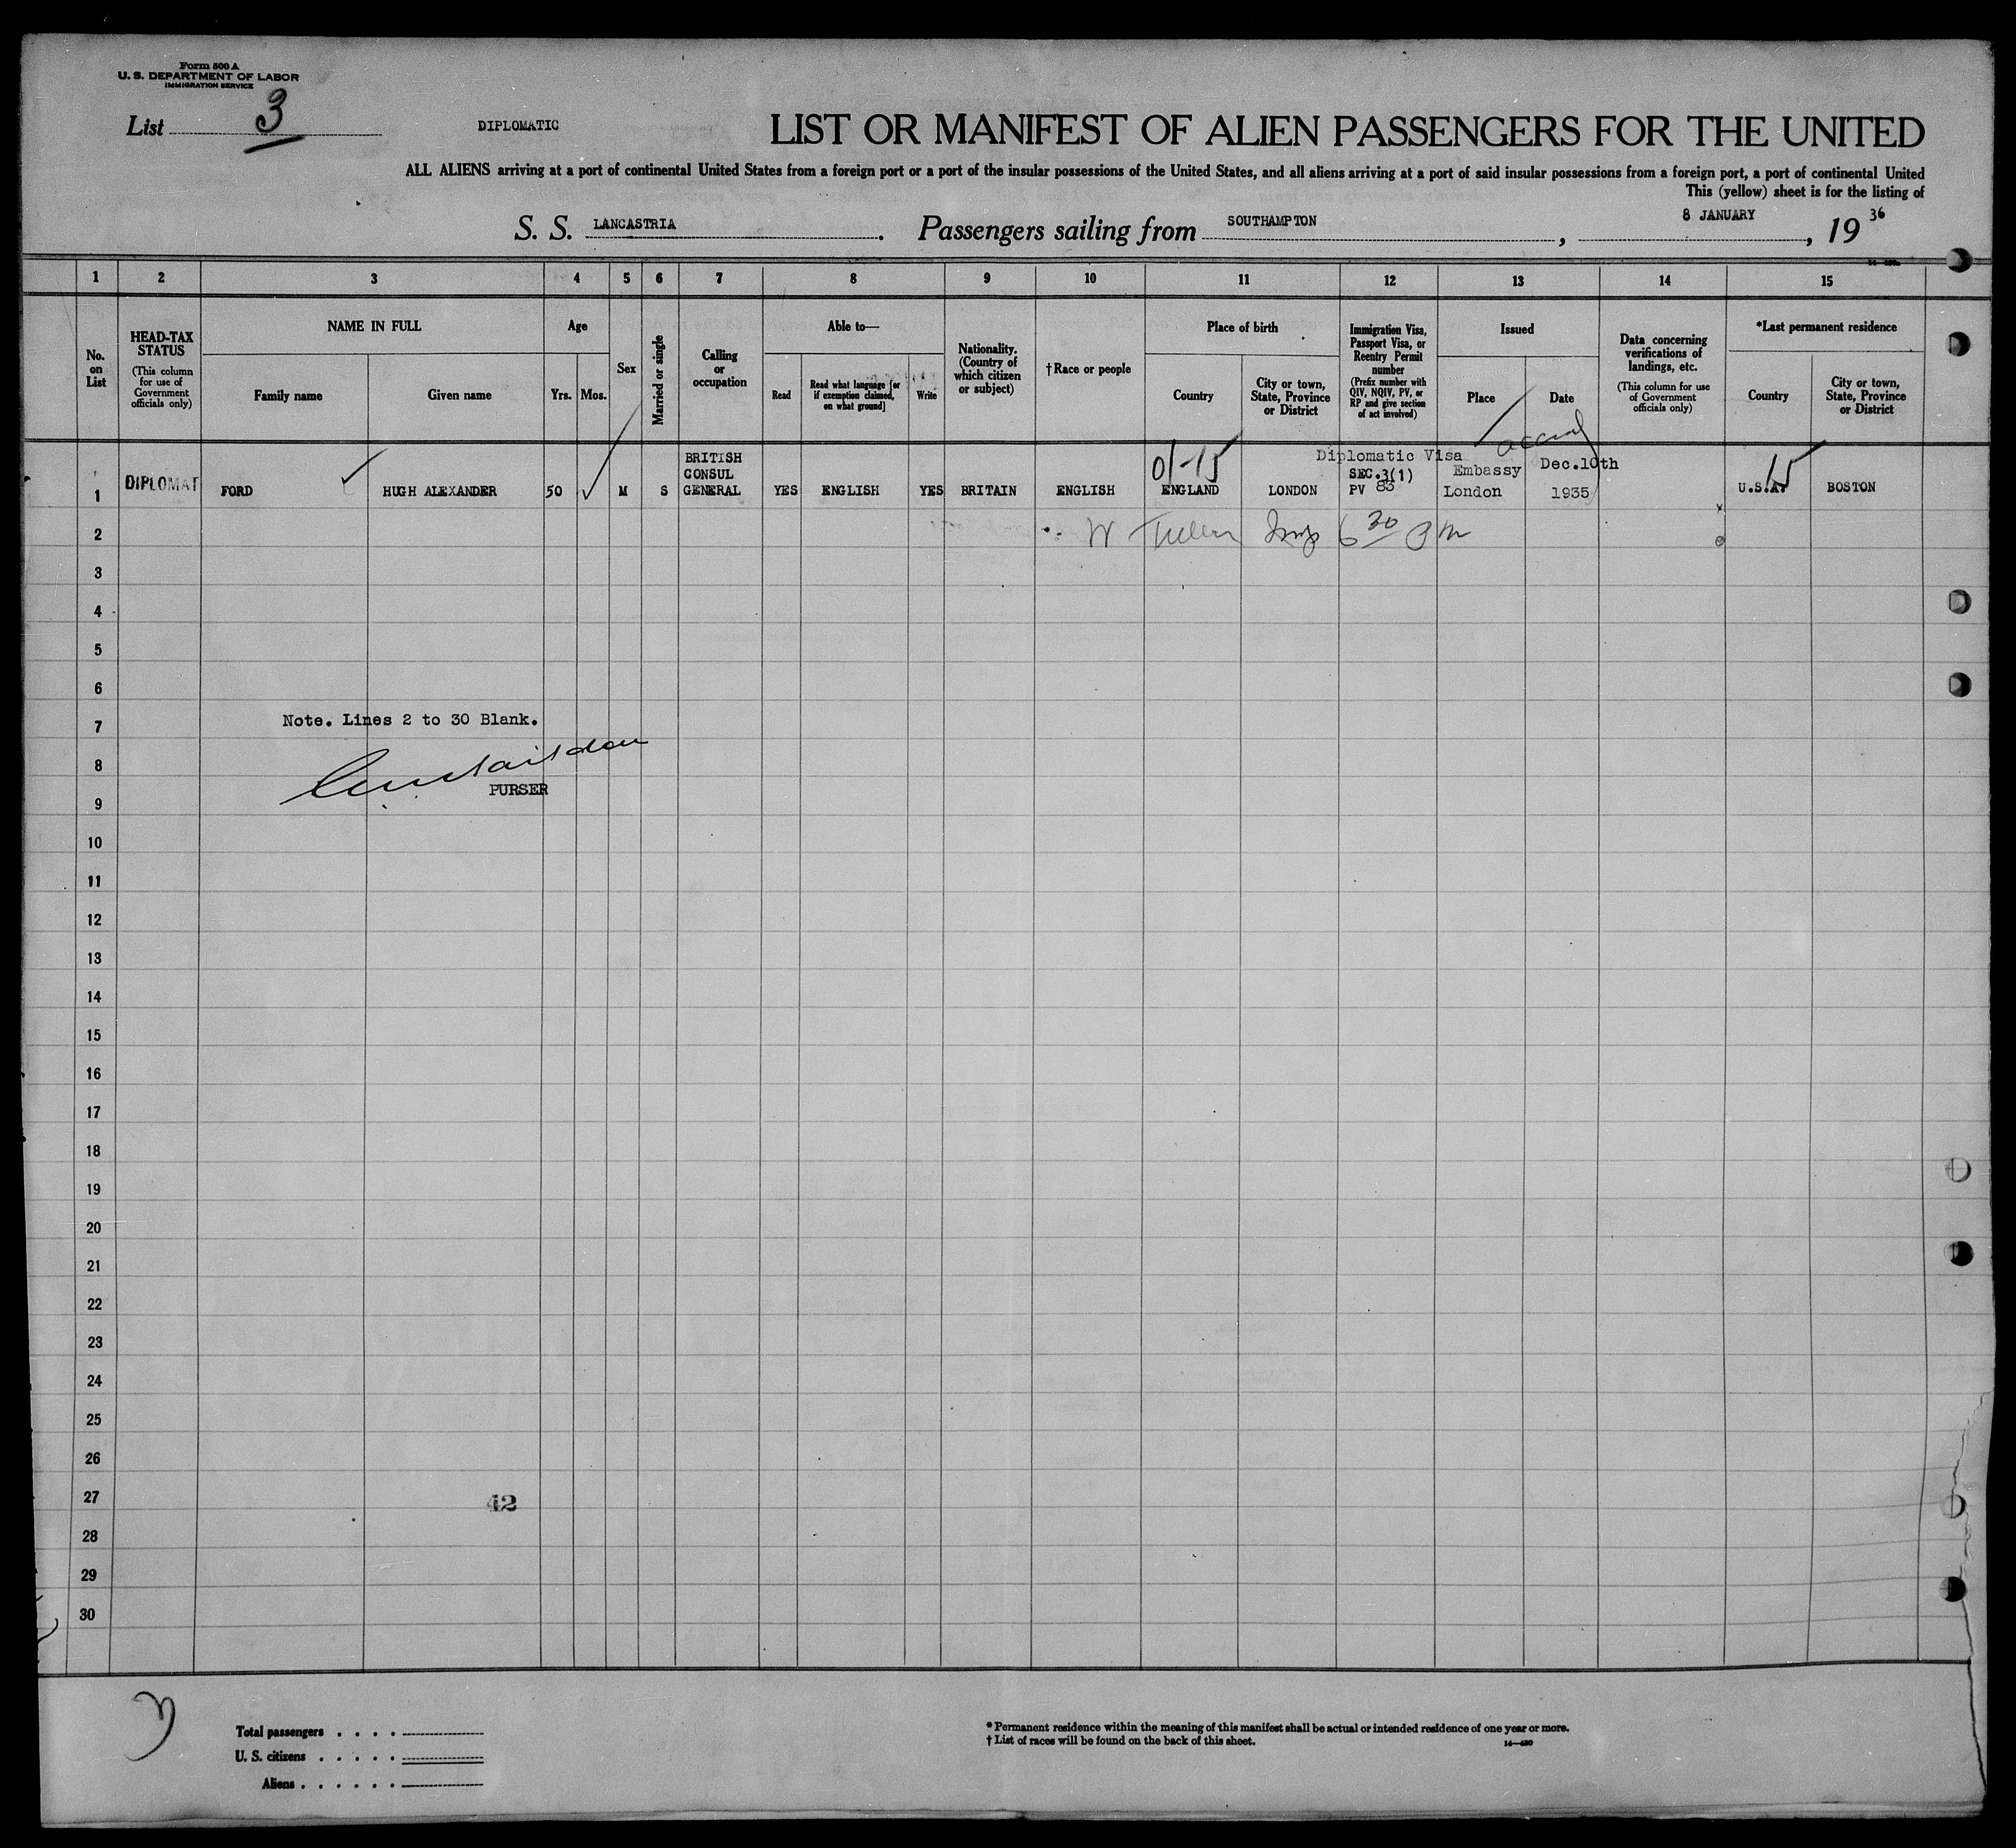 Form 500 A
U. S. DEPARTMENT OF LABOR
IMMIGRATION SERVICE
List 3
DIPLOMATIC
LIST OR MANIFEST OF ALIEN PASSENGERS FOR THE UNITED
ALL ALIENS arriving at a port of continental United States from a foreign port or a port of the insular possessions of the United States, and all aliens arriving at a port of said insular possessions from a foreign port, a port of continental United
This (yellow) sheet is for the listing of
S. S. LANCASTRIA. Passengers sailing from SOUTHAMPTON, 8 JANUARY, 1936
1 2 3 4 5 6 7 8 9 10 11 12 13 14 15
No. on List
HEAD-TAX STATUS
(This column for use of Government officials only)
NAME IN FULL
Family name
Given name
Age
Yrs.
Mos.
Sex
Married or single
Calling or occupation
Able to—
Read
Read what language [or if exemption claimed, on what ground]
Write
Nationality. (Country of which citizen or subject)
†Race or people
Place of birth
Country
City or town, State, Province or District
Immigration Visa, Passport Visa, or Reentry Permit number
(Prefix number with QIV, NQIV, PV, or RP and give section of act involved)
Issued
Place
Date
Data concerning verifications of landings, etc.
(This column for use of Government officials only)
*Last permanent residence
Country
City or town, State, Province or District
01-15
15
1 DIPLOMAT FORD HUGH ALEXANDER 50 M S BRITISH CONSUL GENERAL YES ENGLISH YES BRITAIN ENGLISH ENGLAND LONDON Diplomatic Visa SEC.3(1) PV 83 Embassy London Dec.10th 1935 U.S.A. BOSTON
2 6 30 PM
3
4
5
6
7 Note. Lines 2 to 30 Blank.
8
PURSER
9
10
11
12
13
14
15
16
17
18
19
20
21
22
23
24
25
26
27 42
28
29
30
Total passengers . . . .
U. S. citizens . . . . .
Aliens . . . . . .
*Permanent residence within the meaning of this manifest shall be actual or intended residence of one year or more.
†List of races will be found on the back of this sheet.
14—430